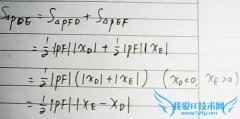 S△PDE = S△PFD + S△PEF
= 1/2 |PF| |x_D| + 1/2 |PF| |x_E|
= 1/2 |PF| (|x_D| + |x_E|) (x_D<0, x_E>0)
= 1/2 |PF| |x_E - x_D|
我爱IT技术网